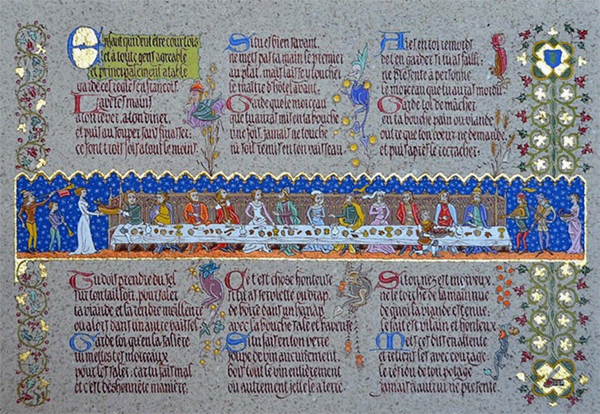 Enfant qui veut être courtois
et à toute gens agréable
et principalement à table
garde ces règles en françois.
Lave tes mains
à ton lever, à ton diner,
et puis au souper sans finasser:
ce sont trois fois à tout le moins.
Si tu es bien savant,
ne mets pas ta main le premier
au plat, mais laisse y toucher
le maître d'hôtel avant.
Garde que le morceau
que tu auras mis en ta bouche
une fois, jamais ne touche
ni soit remis en ton vaisseau.
Aies en toi remords
de t'en garder si tu as failli:
ne présente à personne
le morceau que tu auras mordu.
Garde toi de mâcher
en ta bouche pain ou viande
outre que ton coeur ne demande,
et puis après le recracher.
Tu dois prendre du sel
sur ton tailloir, pour saler
ta viande et la rendre meilleure
ou dans un autre vaissel
Garde toi qu'en la salière
tu mettes tes morceaux
pour les saler: car tu fais mal
et c'est deshonnête manière.
C'est chose honteuse
si tu as serviette ou drap,
de boire dans un hanap
avec sa bouche sale et baveuse
Si tu fais en ton verre
soupe de vin aucunement,
bois tout le vin entièrement
ou autrement jette le à terre.
Si ton nez est morveux
ne le torche de la main nue
de quoi la viande est tenue:
le fait est vilain et honteux
Mets ces dits en attente
et retient les avec courage
le résidu de ton potage
jamais à autrui ne présente.